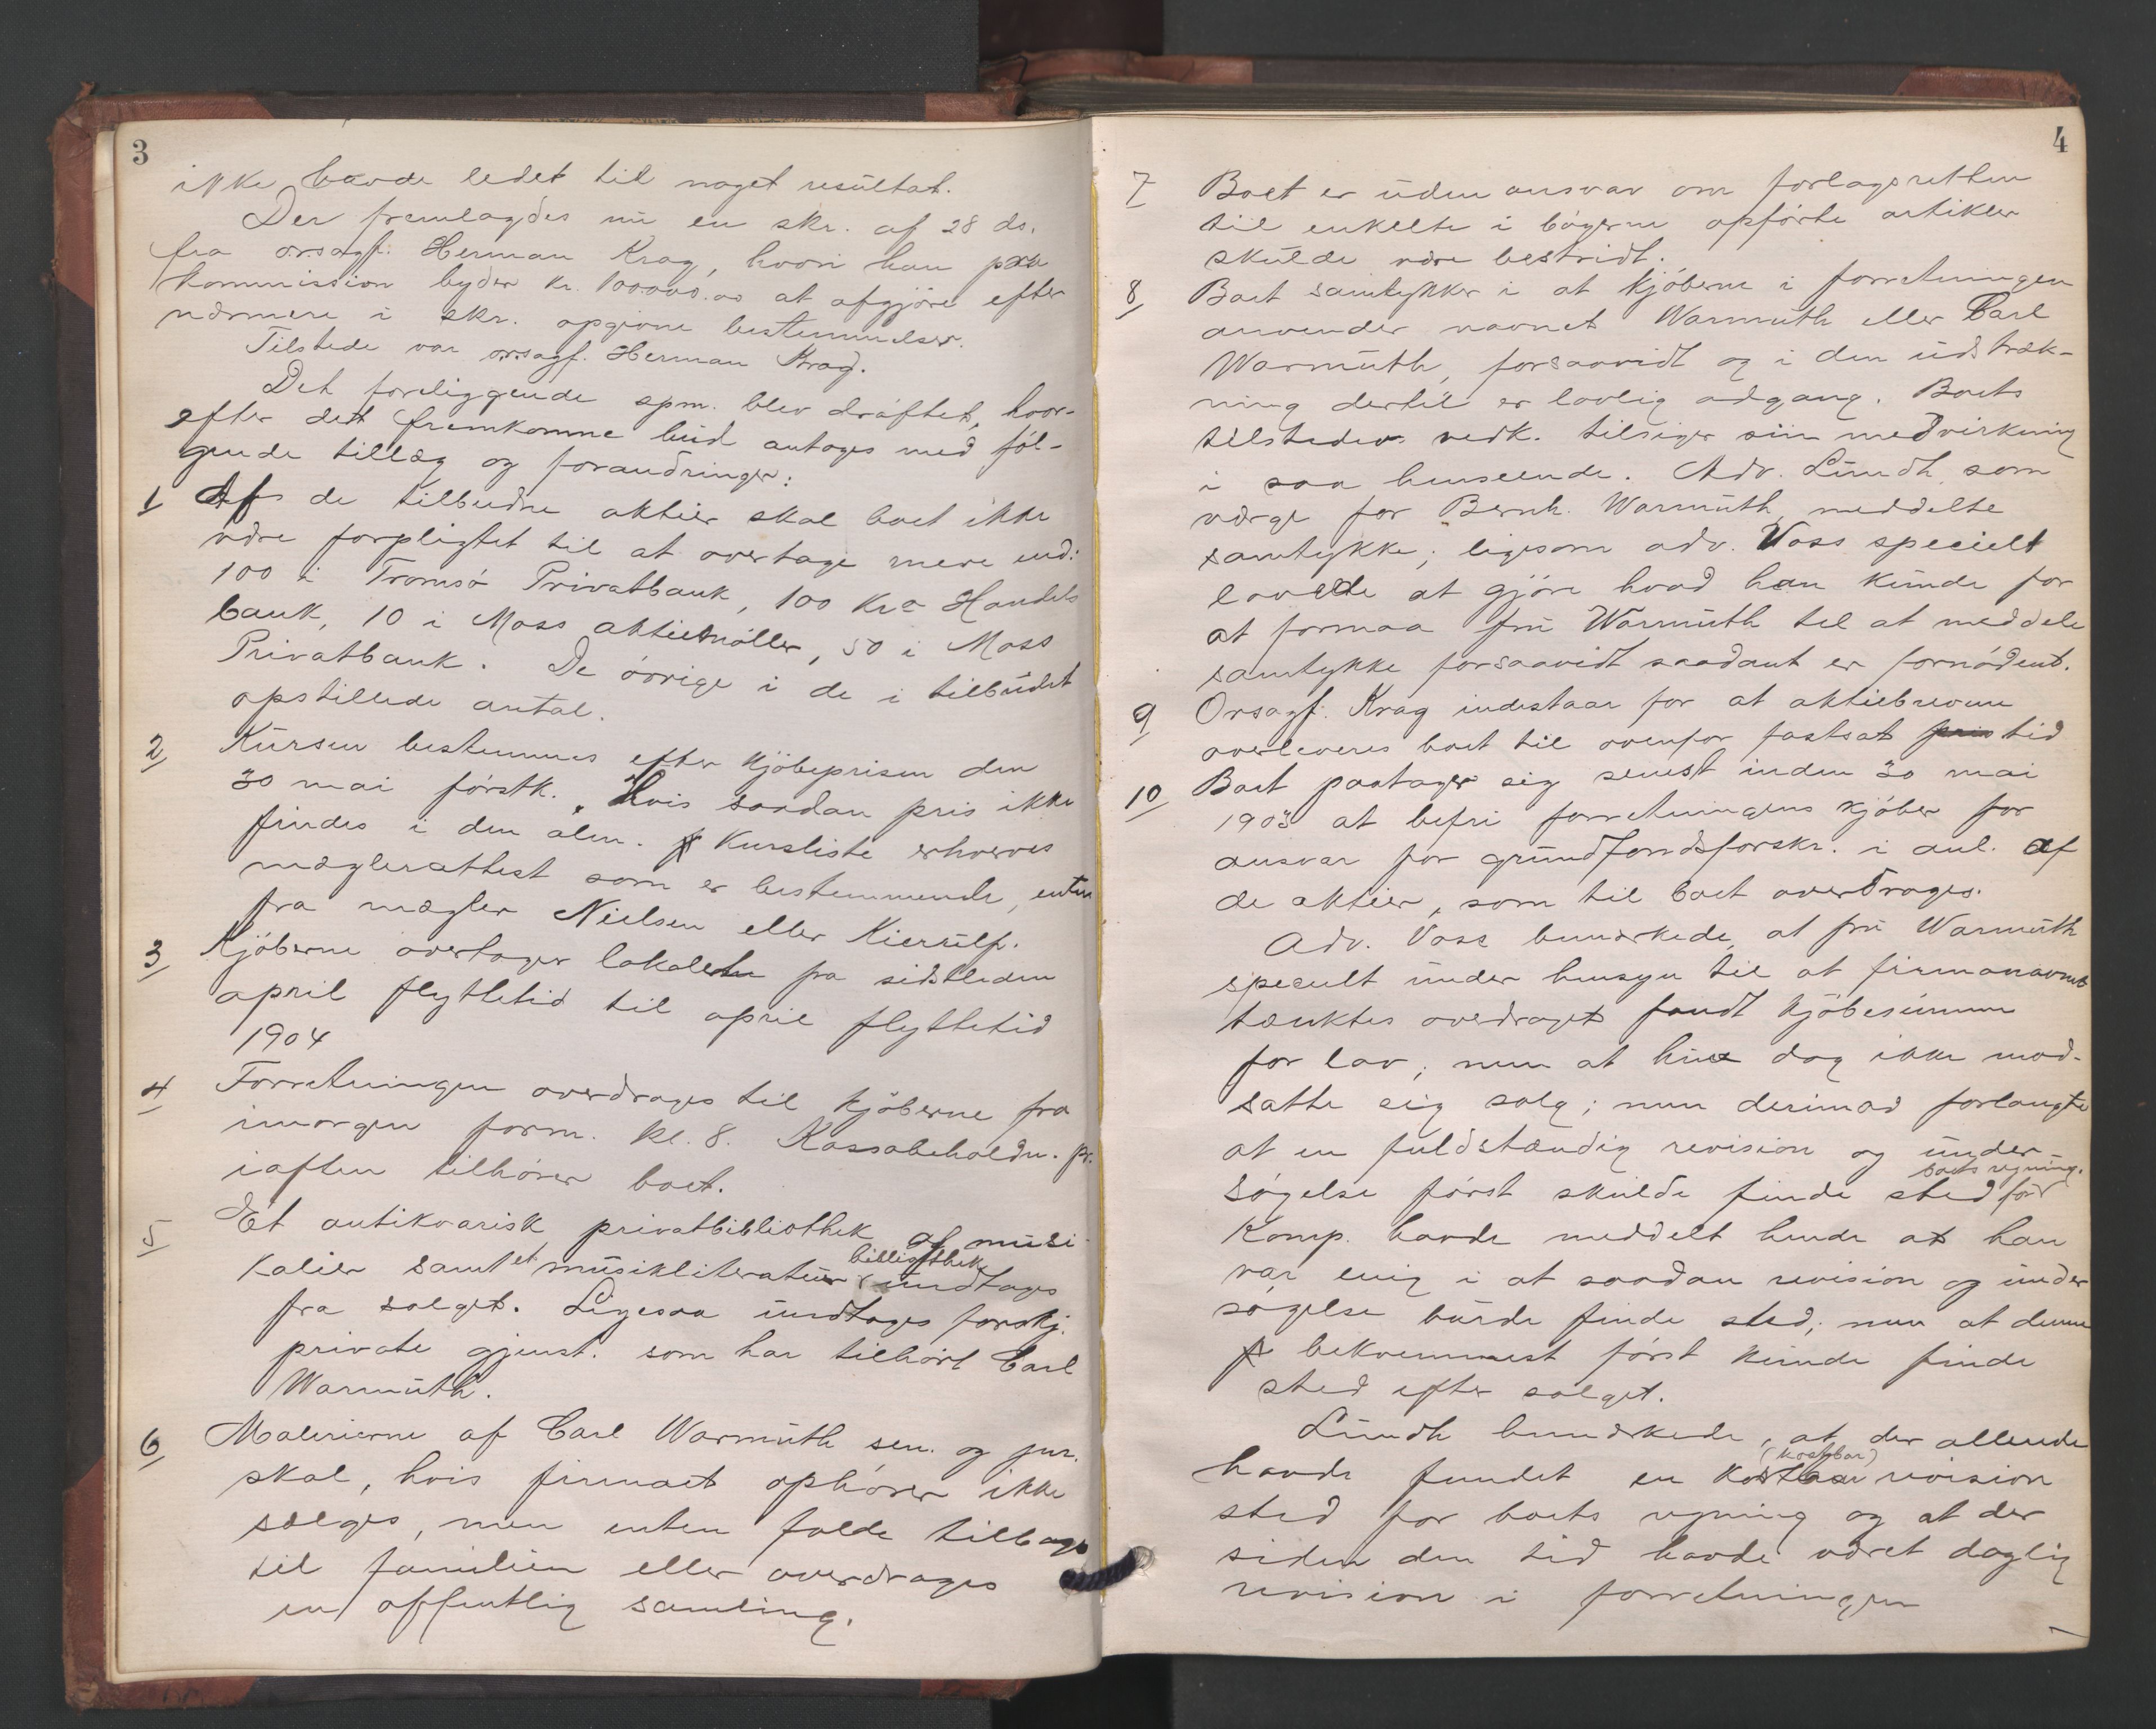 3
ikke havde ledet til noget resultat.
Der fremlagdes nu en skr. af 28 ds.
fra o.r.sagf. Herman Krag, hvori han paa
kommission byder kr. 100000.00 at afgjöre efter
nærmere i skr. opgivne bestemmelser.
Tilstede var o.r.sagf. Herman Krag.
Det foreliggende spm. blev dröftet, hvor-
efter det fremkomne bud antages med föl-
gende tillæg og forandringer:
1 Af de tilbudne aktier skal boet ikke
være forpligtet til at overtage mere end:
100 i Tromsö Privatbank, 100 Kra Handels
bank, 10 i Moss aktiemöller, 50 i Moss
Privatbank. De övrige i de i tilbudet
opstillede antal.
2 Kursen bestemmes efter kjöbeprisen den
30 mai förstk. Hvis saadan pris ikke
findes i den alm. kursliste erhverves
mæglerattest som er bestemmende, enten
fra mægler Nielsen eller Kierulf.
3 Kjöberne overtager lokalerne fra sidstleden
april flyttetid til april flyttetid
1904
4 Forretningen overdrages til kjöberne fra
imorgen form. kl. 8. Kassabeholdn. pr.
iaften tilhörer boet.
5 Et antikvarisk privatbibliothek af musi-
kalier samt et musikliteratur bibliothek undtages
fra salget. Ligesaa undtages forskj.
private gjenst. som har tilhört Carl
Warmuth.
6 Malerierne af Carl Warmuth sen. og jun.
skal, hvis firmaet ophörer ikke
sælges, men enten falde tilbage
til familien eller overdrages
en offentlig samling.
4
7 Boet er uden ansvar om forlagsretten
til enkelte i bögerne opförte artikler
skulde være bestridt.
8 Boet samtykker i at kjöberne i forretningen
anvender navnet Warmuth eller Carl
Warmuth, forsaavidt og i den udstræk-
ning dertil er lovlig adgang. Boets
tilstedev. vedk. tilsiger sin medvirkning
i saa henseende. Adv. Lundh, som
værge for Bernh. Warmuth, meddelte
samtykke; ligesom adv. Voss specielt
lovede at gjöre hvad han kunde for
at formaa fru Warmuth til at meddele
samtykke forsaavidt saadant er fornödent.
9 Orsagf. Krag indestaar for at aktiebrevene
overleveres boet til ovenfor fastsat pris tid
10 Boet paatager sig senest inden 30 mai
1903 at befri forretningens kjöber for
ansvar for grundfondsforskr. i anl. af
de aktier, som til boet overdrages.
Adv. Voss bemærkede, at fru Warmuth
specielt under hensyn til at firmanavnet
tænktes overdraget fandt kjöbesummen
for lav; men at hun dog ikke mod-
satte sig salg; men derimod forlangte
at en fuldstændig revision og under-
sögelse först skulde finde sted for boets regning.
Komp. havde meddelt hende at han
var enig i at saadan revision og under
sögelse burde finde sted; men at denne
bekvemmest först kunde finde
sted efter salget.
Lundh bemærkede, at der allerede
havde fundet en kostbar (kostbar) revision
sted for boets regning og at der
siden den tid havde været daglig
revision i forretningen